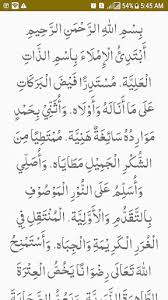 54% 5:45 AM
بِسْمِ اللهِ الرَّحْمٰنِ الرَّحِيْمِ
أَبْتَدِئُ الْإِمْلَاءَ بِاسْمِ الذَّاتِ
الْعَلِيَّةِ. مُسْتَدِرًّا فَيْضَ الْبَرَكَاتِ
عَلٰى مَا أَنَالَهُ وَأَوْلَاهُ. وَأُثَنِّيْ بِحَمْدٍ
مَوَارِدُهُ سَائِغَةٌ هَنِيَّةٌ. مُمْتَطِيًا مِنَ
الشُّكْرِ الْجَمِيْلِ مَطَايَاهُ. وَأُصَلِّيْ
وَأُسَلِّمُ عَلَى النُّوْرِ الْمَوْصُوْفِ
بِالتَّقَدُّمِ وَالْأَوَّلِيَّةِ. الْمُنْتَقِلِ فِي
الْغُرَرِ الْكَرِيْمَةِ وَالْجِبَاهِ. وَأَسْتَمْنِحُ
اللهَ تَعَالٰى رِضْوَانًا يَخُصُّ الْعِتْرَةَ